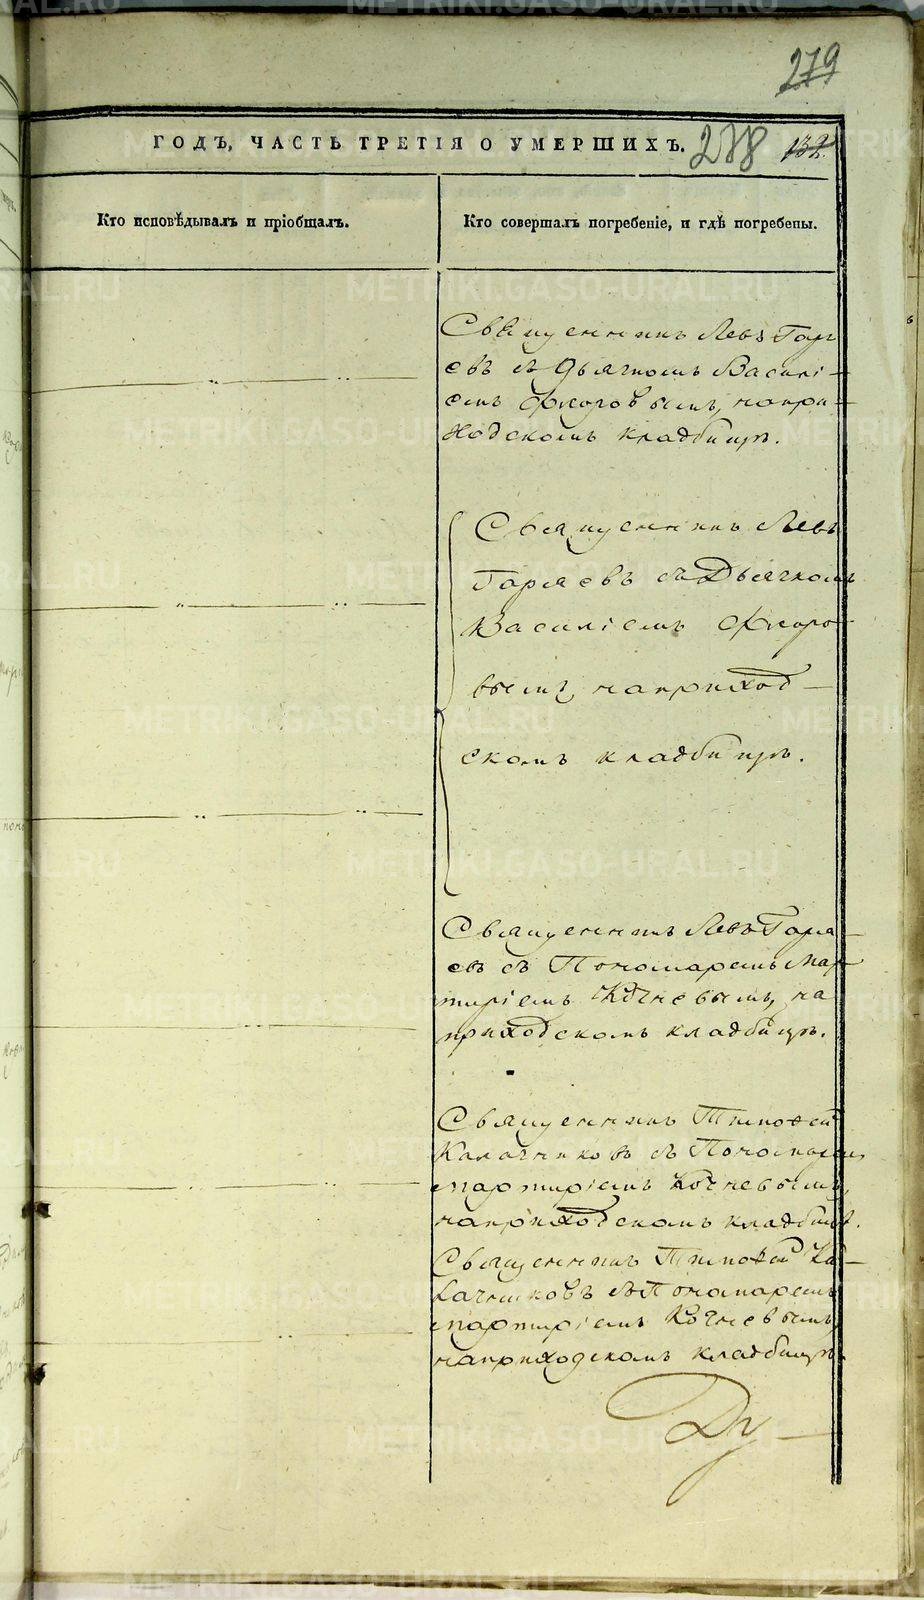 279
ГОДЪ, ЧАСТЬ ТРЕТІЯ О УМЕРШИХЪ. 288 132.
Кто исповѣдывалъ и пріобщалъ.
Кто совершалъ погребеніе, и гдѣ погребены.
Священникъ Левъ Гаря
евъ съ Дьячкомъ Василі-
емъ Флоровымъ, на при-
ходскомъ кладбищѣ.
Священникъ Левъ
Гаряевъ съ Дьячкомъ
Василіемъ Флоро-
вымъ, на приход-
скомъ кладбищѣ.
Священникъ Левъ Гаря-
евъ съ Пономаремъ Мар-
тиріемъ Кочневымъ, на
приходскомъ кладбищѣ.
Священникъ Тимофей
Калачниковъ съ Пономаремъ
Мартиріемъ Кочневымъ,
на приходскомъ кладбищѣ.
Священникъ Тимофей Ка-
лачниковъ съ Пономаремъ
Мартиріемъ Кочневымъ,
на приходскомъ кладбищѣ.
METRIKI.GASO-URAL.RU